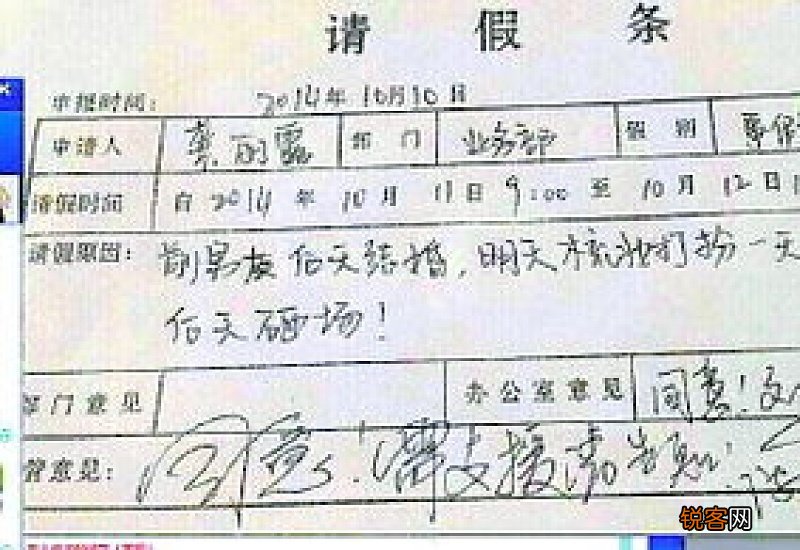 请假条
申报时间: 2014年10月10日
申请人 部门 业务部 级别
请假时间 自2014年10月11日9:00至10月12日
请假原因: 前男友后天结婚,明天梳妆打扮一天
后天砸场!
部门意见 办公室意见 同意!
管意见: 同意!需支援请告知!
锐客网